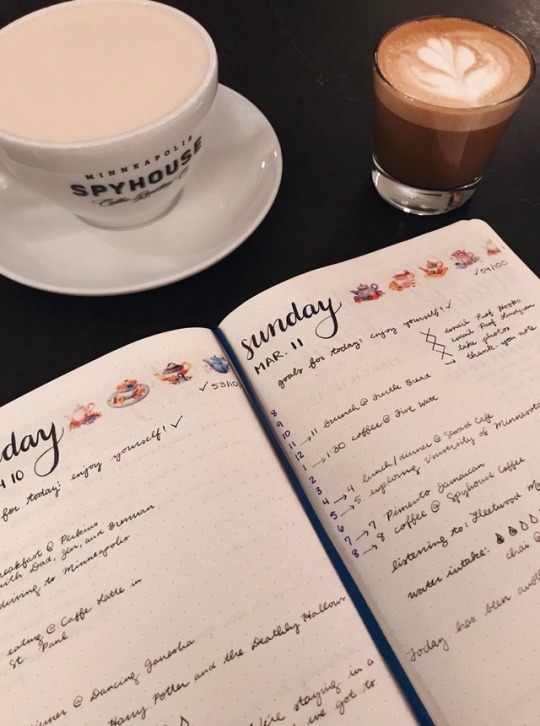 MINNEAPOLIS
SPYHOUSE
Coffee Roasting Co
day
10
✓ 53/10
for today: enjoy yourself! ✓
breakfast @ Perkins
with Dad, Jen, and Brennan
driving to Minneapolis
eating @ Caffe Latte in
St. Paul
dinner @ Dancing Ganesha
Harry Potter and the Deathly Hallows
we're staying in a
we got to
sunday
MAR. 11
✓ 54/100
goals for today: enjoy yourself! ✓
email Prof Hooks
email Prof
take photos
→ thank-you note
8
9
10
11 → 11 brunch @ Bread
12
1 → 1:30 coffee @ Five Watt
2
3
4 → 4 lunch/dinner @ Seward Cafe
5 → 5 exploring University of Minnesota
6
7 → 7 Pimento Jamaican
8 → 8 coffee @ Spyhouse Coffee
listening to: Fleetwood Ma
water intake:
chai @
Today has been anoth